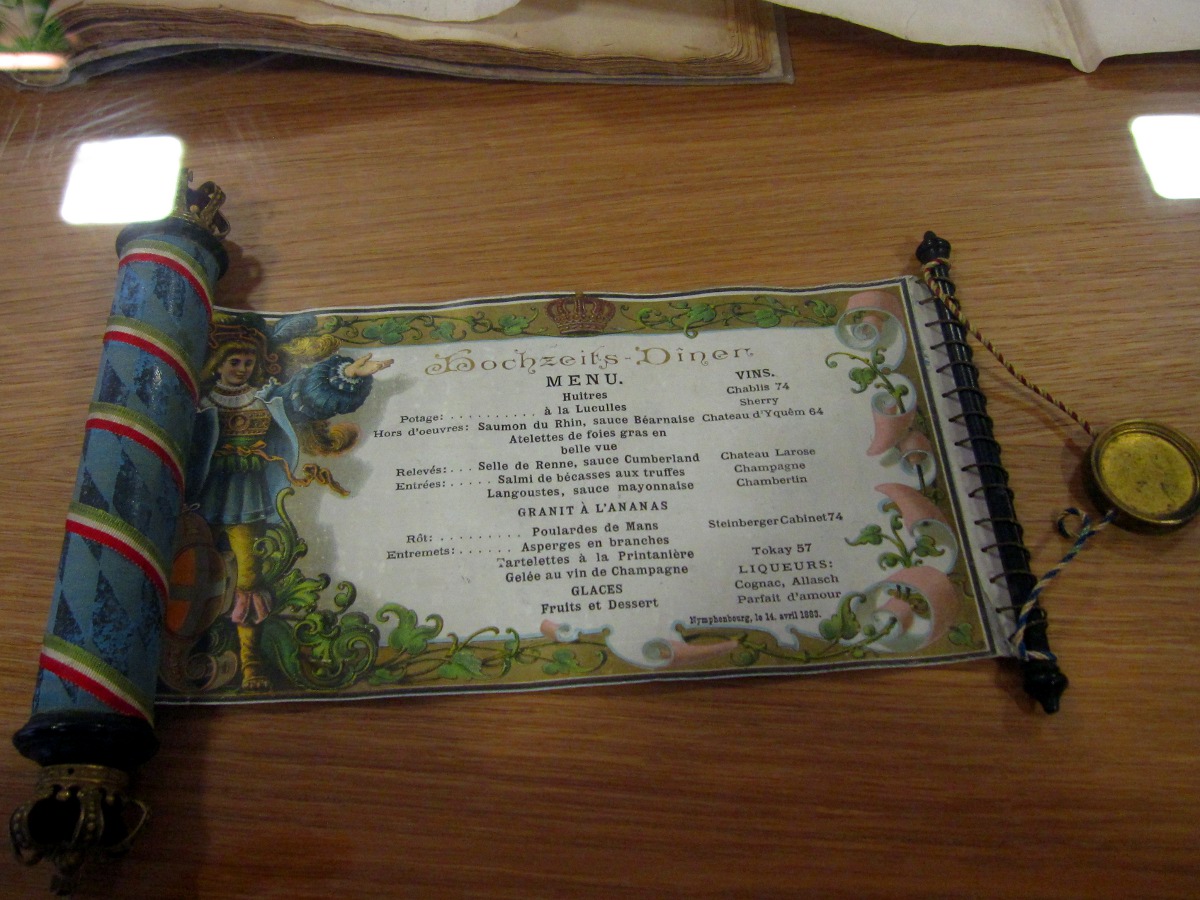 Hochzeits-Dîner
MENU.
Huitres
Potage: . . . . . . . . . . à la Luculles
Hors d'oeuvres: Saumon du Rhin, sauce Béarnaise
Atelettes de foies gras en
belle vue
Relevés: . . . Selle de Renne, sauce Cumberland
Entrées: . . . . . Salmi de bécasses aux truffes
Langoustes, sauce mayonnaise
GRANIT À L'ANANAS
Rôt: . . . . . . . . . . Poulardes de Mans
Entremets: . . . . . . Asperges en branches
Tartelettes à la Printanière
Gelée au vin de Champagne
GLACES
Fruits et Dessert
VINS.
Chablis 74
Sherry
Chateau d'Yquêm 64
Chateau Larose
Champagne
Chambertin
Steinberger Cabinet 74
Tokay 57
LIQUEURS:
Cognac, Allasch
Parfait d'amour
Nymphenbourg, le 14. avril 1883.